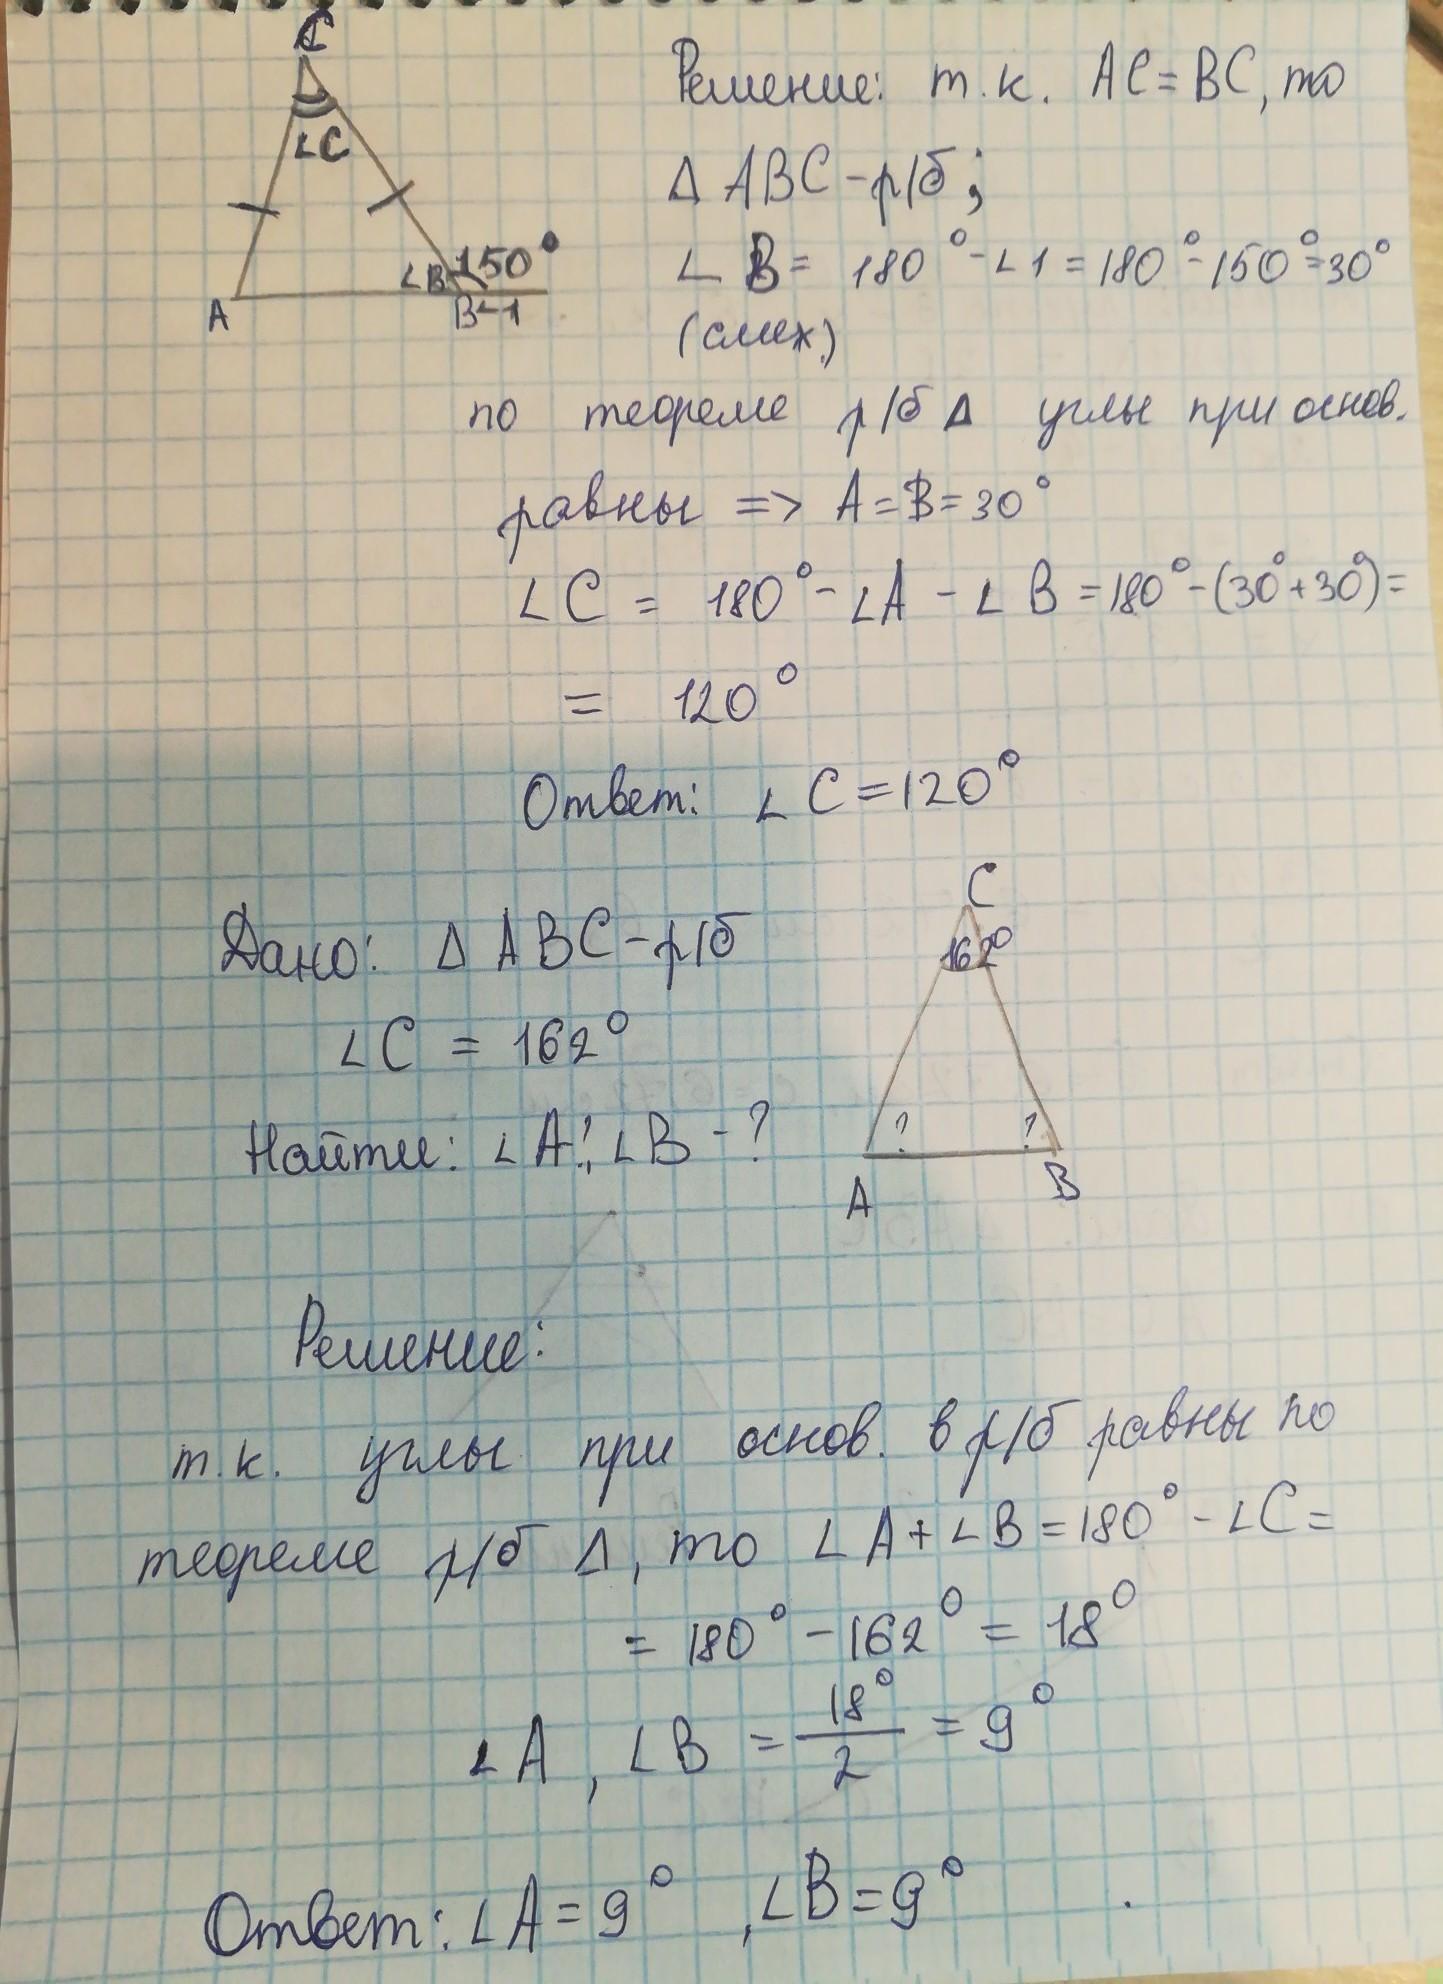 C
∠C
∠B 150°
A B ∠1
Решение: т.к. AC = BC, то
Δ ABC - р/б;
∠B = 180° - ∠1 = 180° - 150° = 30°
(смеж.)
по теореме р/б Δ углы при основ.
равны => A = B = 30°
∠C = 180° - ∠A - ∠B = 180° - (30° + 30°) =
= 120°
Ответ: ∠C = 120°
Дано: Δ ABC - р/б
∠C = 162°
Найти: ∠A; ∠B - ?
C
162°
? ?
A B
Решение:
т.к. углы при основ. в р/б равны по
теореме р/б Δ, то ∠A + ∠B = 180° - ∠C =
= 180° - 162° = 18°
∠A, ∠B = 18°/2 = 9°
Ответ: ∠A = 9°, ∠B = 9°